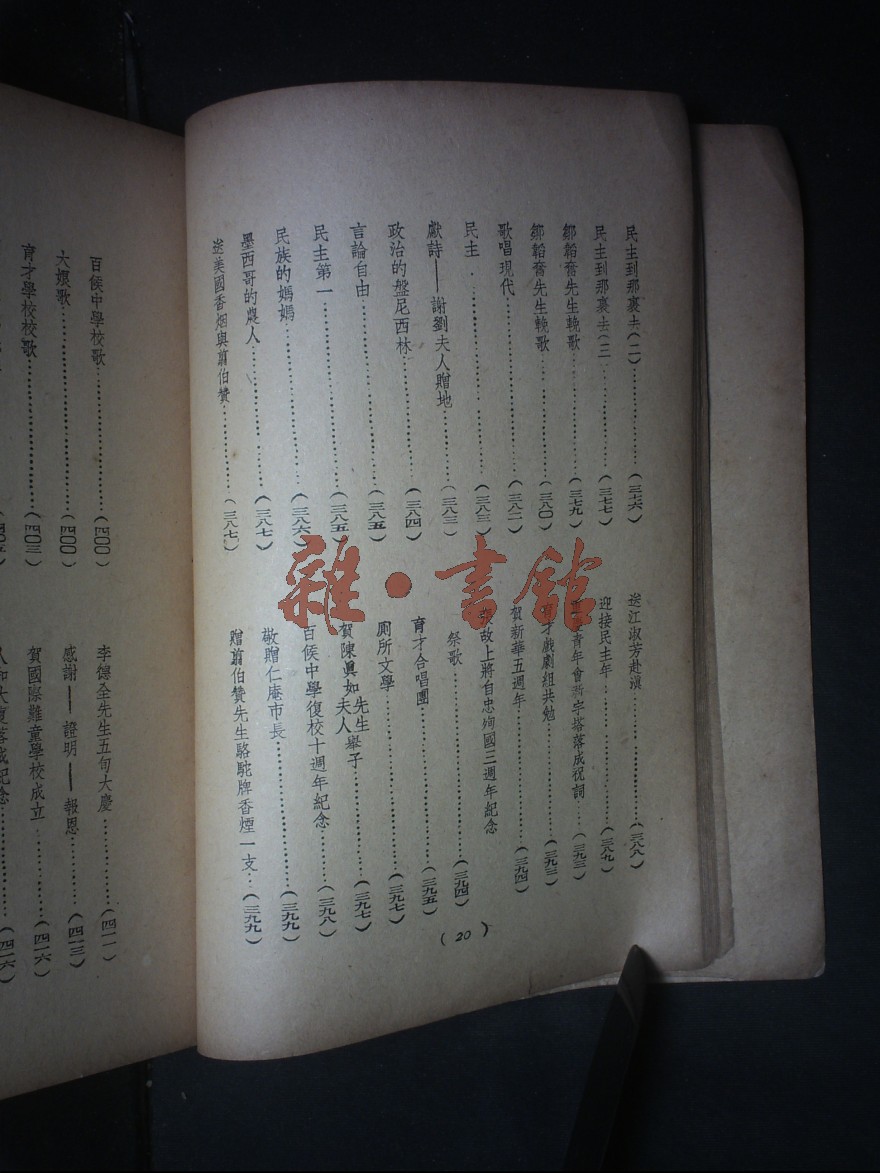 民主到那裏去(二)……(三七六)
民主到那裏去(三)……(三七七)
鄒韜奮先生輓歌……(三七九)
鄒韜奮先生輓歌……(三八〇)
歌唱現代……(三八二)
民主……(三八三)
獻詩——謝劉夫人贈地……(三八三)
政治的盤尼西林……(三八四)
言論自由……(三八五)
民主第一……(三八五)
民族的媽媽……(三八六)
墨西哥的農人……(三八七)
送美國香烟與翦伯贊……(三八七)
送江淑芳赴滇……(三八八)
迎接民主年……(三八九)
青年會新字塔落成祝詞…(三九三)
才戲劇組共勉……(三九三)
賀新華五週年……(三九四)
故上將自忠殉國三週年紀念
祭歌……(三九四)
育才合唱團……(三九五)
廁所文學……(三九七)
賀陳眞如先生夫人舉子……(三九七)
百侯中學復校十週年紀念……(三九八)
敬贈仁庵市長……(三九九)
贈翦伯贊先生駱駝牌香煙一支…(三九九)
(20)
百侯中學校歌……(四〇〇)
大娘歌……(四〇〇)
育才學校校歌……(四〇三)
李德全先生五旬大慶……(四一一)
感謝——證明——報恩……(四一三)
賀國際難童學校成立……(四一六)
落成紀念……(四一六)
雜·書館